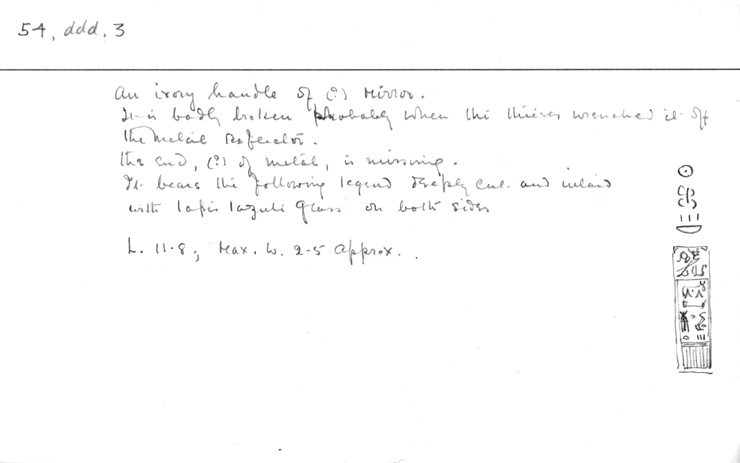 54, ddd, 3
An ivory handle of (?) Mirror.
It is badly broken probably when the thieves wrenched it off
the metal Reflector.
The end, (?) of metal, is missing.
It bears the following legend deeply cut and inlaid
with lapis lazuli glass on both sides
L. 11·8; Max. W. 2·5 approx.